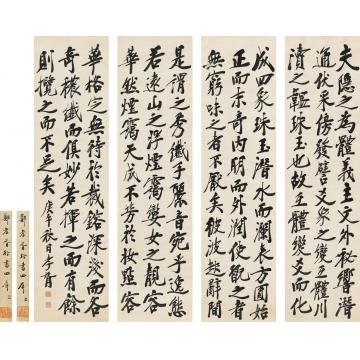 夫隱之為體義主文外秘響傍
通伏采潛發譬爻象之變互體川
瀆之韞珠玉也故互體變爻而化
成四象珠玉潛水而瀾表方圓始
正而末奇內明而外潤使玩之者
無窮味之者不厭矣彼波起辭間
是謂之秀纖手麗音宛乎逸態
若遠山之浮煙靄孌女之靚容
華然煙靄天成不勞於妝點容
華格定無待於裁鎔深淺而各
奇穠纖而俱妙若揮之而有餘
則攬之而不足矣 庚午秋日 孝胥
鄭孝胥行書四屏
鄭孝胥行書四屏